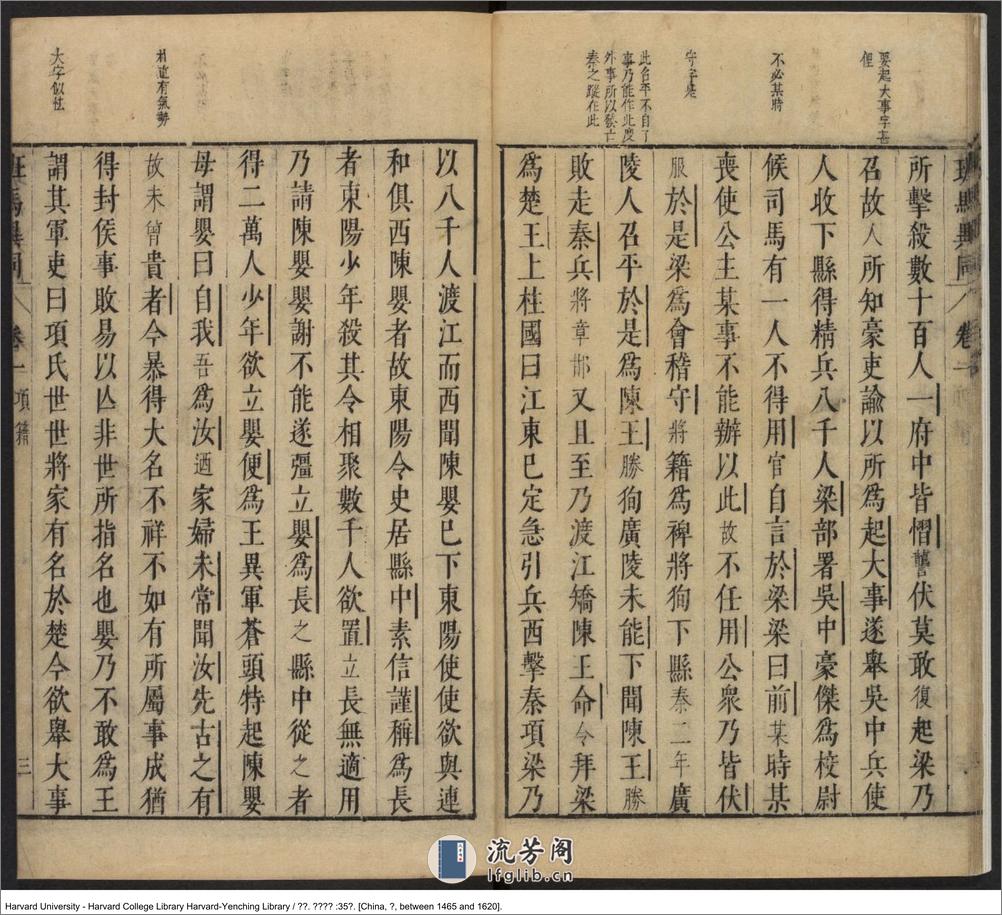 要起大事字甚
俚
不必某時
守字是
此召平不自了
事乃能作此度
外事所以發亡
秦之蹤在此
班馬異同 卷一
所擊殺數十百人一府中皆慴讋伏莫敢復起梁乃
召故人所知豪吏諭以所爲起大事遂舉吳中兵使
人收下縣得精兵八千人梁部署吳中豪傑爲校尉
候司馬有一人不得用官自言於梁梁曰前某時某
喪使公主某事不能辦以此故不任用公衆乃皆伏
服於是梁爲會稽守將籍爲裨將狥下縣秦二年廣
陵人召平於是爲陳王勝狥廣陵未能下聞陳王勝
敗走秦兵將章邯又且至乃渡江矯陳王命令拜梁
爲楚王上柱國曰江東已定急引兵西擊秦項梁乃
朴直有氣勢
大字似怯
以八千人渡江而西聞陳嬰已下東陽使使欲與連
和俱西陳嬰者故東陽令史居縣中素信謹稱爲長
者東陽少年殺其令相聚數千人欲置立長無適用
乃請陳嬰嬰謝不能遂彊立嬰爲長之縣中從之者
得二萬人少年欲立嬰便爲王異軍蒼頭特起陳嬰
母謂嬰曰自我吾爲汝迺家婦未常聞汝先古之有
故未曾貴者今暴得大名不祥不如有所屬事成猶
得封侯事敗易以亾非世所指名也嬰乃不敢爲王
謂其軍吏曰項氏世世將家有名於楚今欲舉大事
班馬異同 卷一 項籍 三
流芳阁
lfglib.cn
Harvard University - Harvard College Library Harvard-Yenching Library / ??. ???? :35?. [China, ?, between 1465 and 1620].